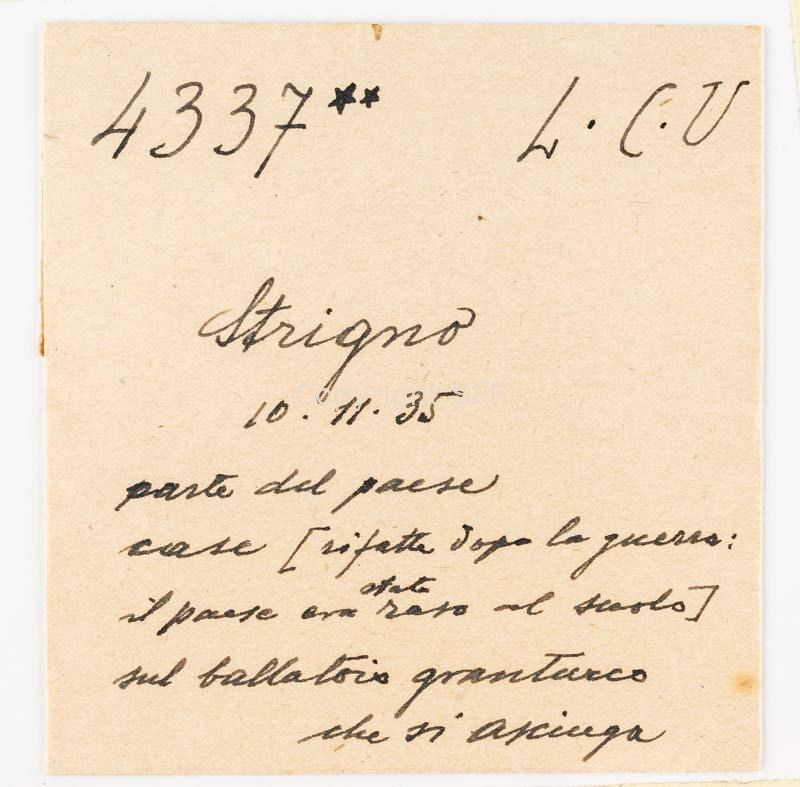 4337** L. C. U
Strigno
10. 11. 35
parte del paese
case [rifatte dopo la guerra:
il paese era stato raso al suolo]
sul ballatoio granturco
che si asciuga